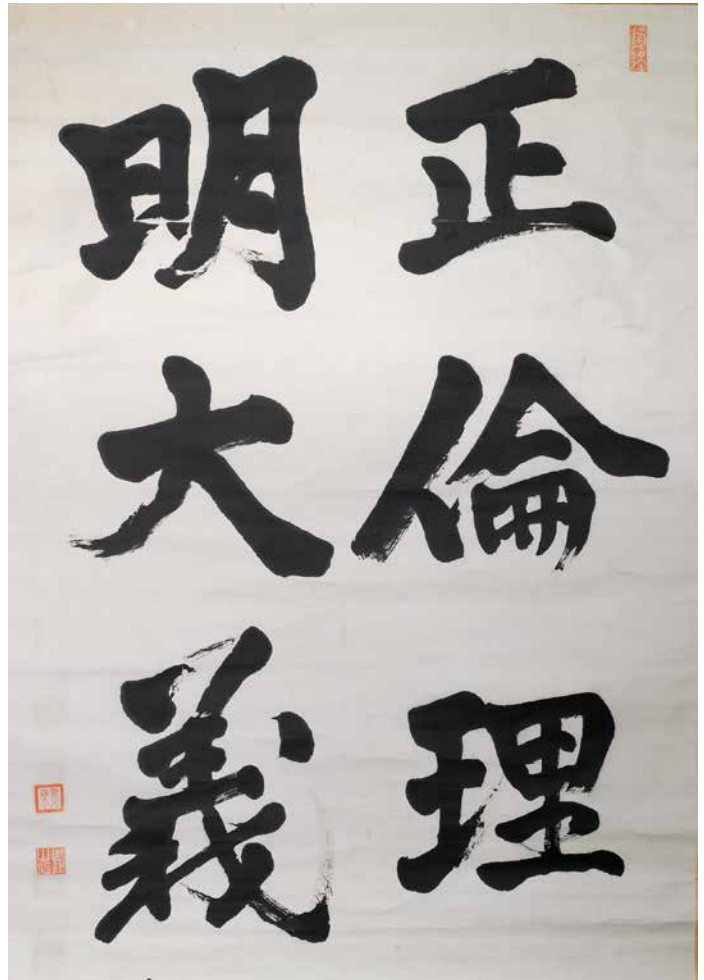 正倫理
明大義